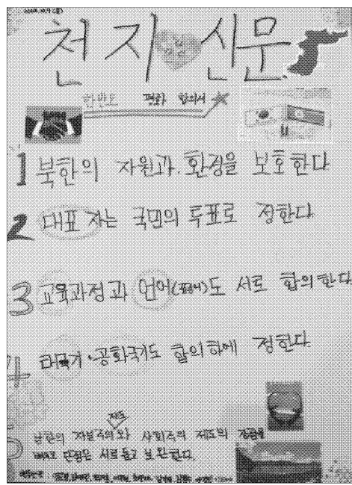 천지신문
한반도 평화 합의서
1 북한의 자원과 환경을 보호한다
2 대표 자는 국민의 투표로 정한다
3 교육과정과 언어(표준어)도 서로 합의한다
4 태극기·공화국기도 합의하에 정한다
제도
남한의 자본주의와 사회주의 제도의 장점을
단점은 서로 돕고 보완한다.